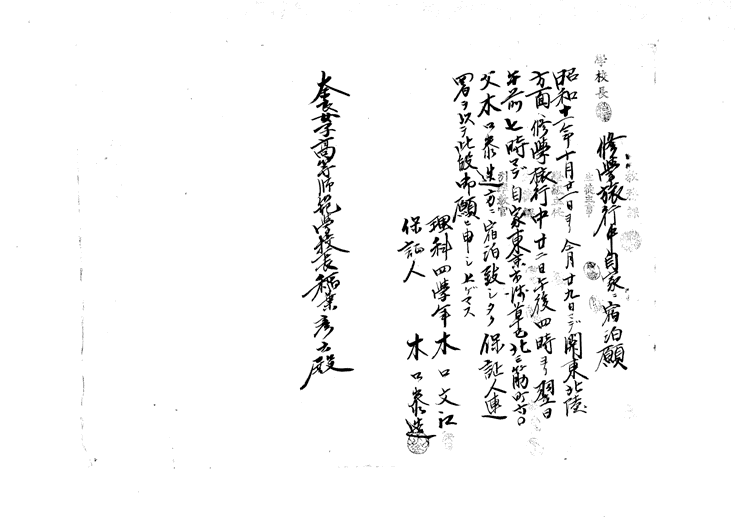 学校長
修學旅行中自家ニ宿泊願
昭和十一年十月廿一日ヨリ仝月廿九日マデ関東北陸
方面ヘ修學旅行中廿二日午後四時ヨリ翌日
午前七時マデ自家東京市浅草区北三筋町六〇
父木口泰造方ニ宿泊致シタク保証人連
署ヲ以テ此段御願ヒ申シ上ゲマス
理科四學年木口文江
保証人 木口泰造
奈良女子高等師範学校長稲葉彦六殿